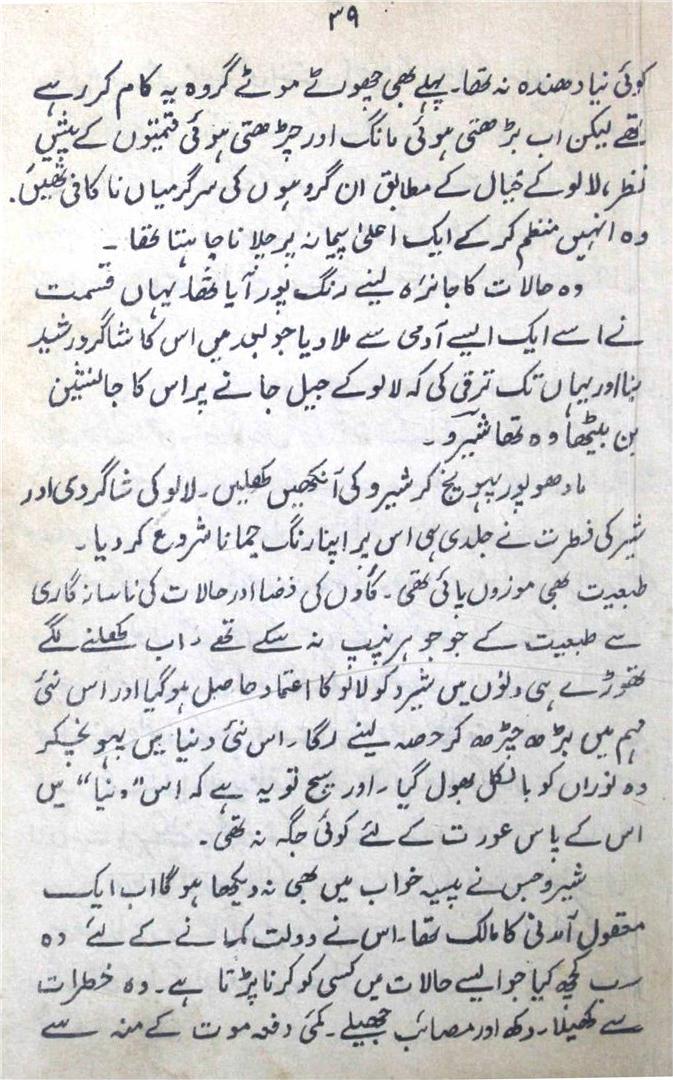 ۳۹
کوئی نیا دھندہ نہ تھا۔ پہلے بھی چھوٹے موٹے گروہ یہ کام کر رہے
تھے لیکن اب بڑھتی ہوئی مانگ اور چڑھتی ہوئی قیمتوں کے پیش
نظر، لالو کے خیال کے مطابق ان گروہوں کی سرگرمیاں ناکافی تھیں۔
وہ انہیں منظم کر کے ایک اعلیٰ پیمانہ پر چلانا چاہتا تھا ۔
وہ حالات کا جائزہ لینے رنگ پور آیا تھا، یہاں قسمت
نے اسے ایک ایسے آدمی سے ملا دیا جو بعد میں اس کا شاگرد رشید
بنا اور یہاں تک ترقی کی کہ لالو کے جیل جانے پر اس کا جانشین
بن بیٹھا وہ تھا شیرو۔
مادھو پور پہونچ کر شیرو کی آنکھیں کھلیں۔ لالو کی شاگردی اور
شیر کی فطرت نے جلدی ہی اس پر اپنا رنگ جمانا شروع کر دیا۔
طبعیت بھی موزوں پائی تھی۔ گاؤں کی فضا اور حالات کی ناسازگاری
سے طبعیت کے جو جوہر نپپ نہ سکے تھے، اب کھلنے لگے
تھوڑے ہی دنوں میں شیرو کو لالو کا اعتماد حاصل ہو گیا اور اس نئی
مہم میں بڑھ چڑھ کر حصہ لینے لگا۔ اس نئی دنیا میں پہونچکر
وہ نوراں کو بالکل بھول گیا۔ اور سچ تو یہ ہے کہ اس "دنیا" میں
اس کے پاس عورت کے لئے کوئی جگہ نہ تھی۔
شیرو جس نے پیسہ خواب میں بھی نہ دیکھا ہو گا اب ایک
معقول آمدنی کا مالک تھا۔ اس نے دولت کمانے کے لئے وہ
سب کچھ کیا جو ایسے حالات میں کسی کو کرنا پڑتا ہے۔ وہ خطرات
سے کھیلا۔ دکھ اور مصائب جھیلے۔ کئی دفعہ موت کے منہ سے